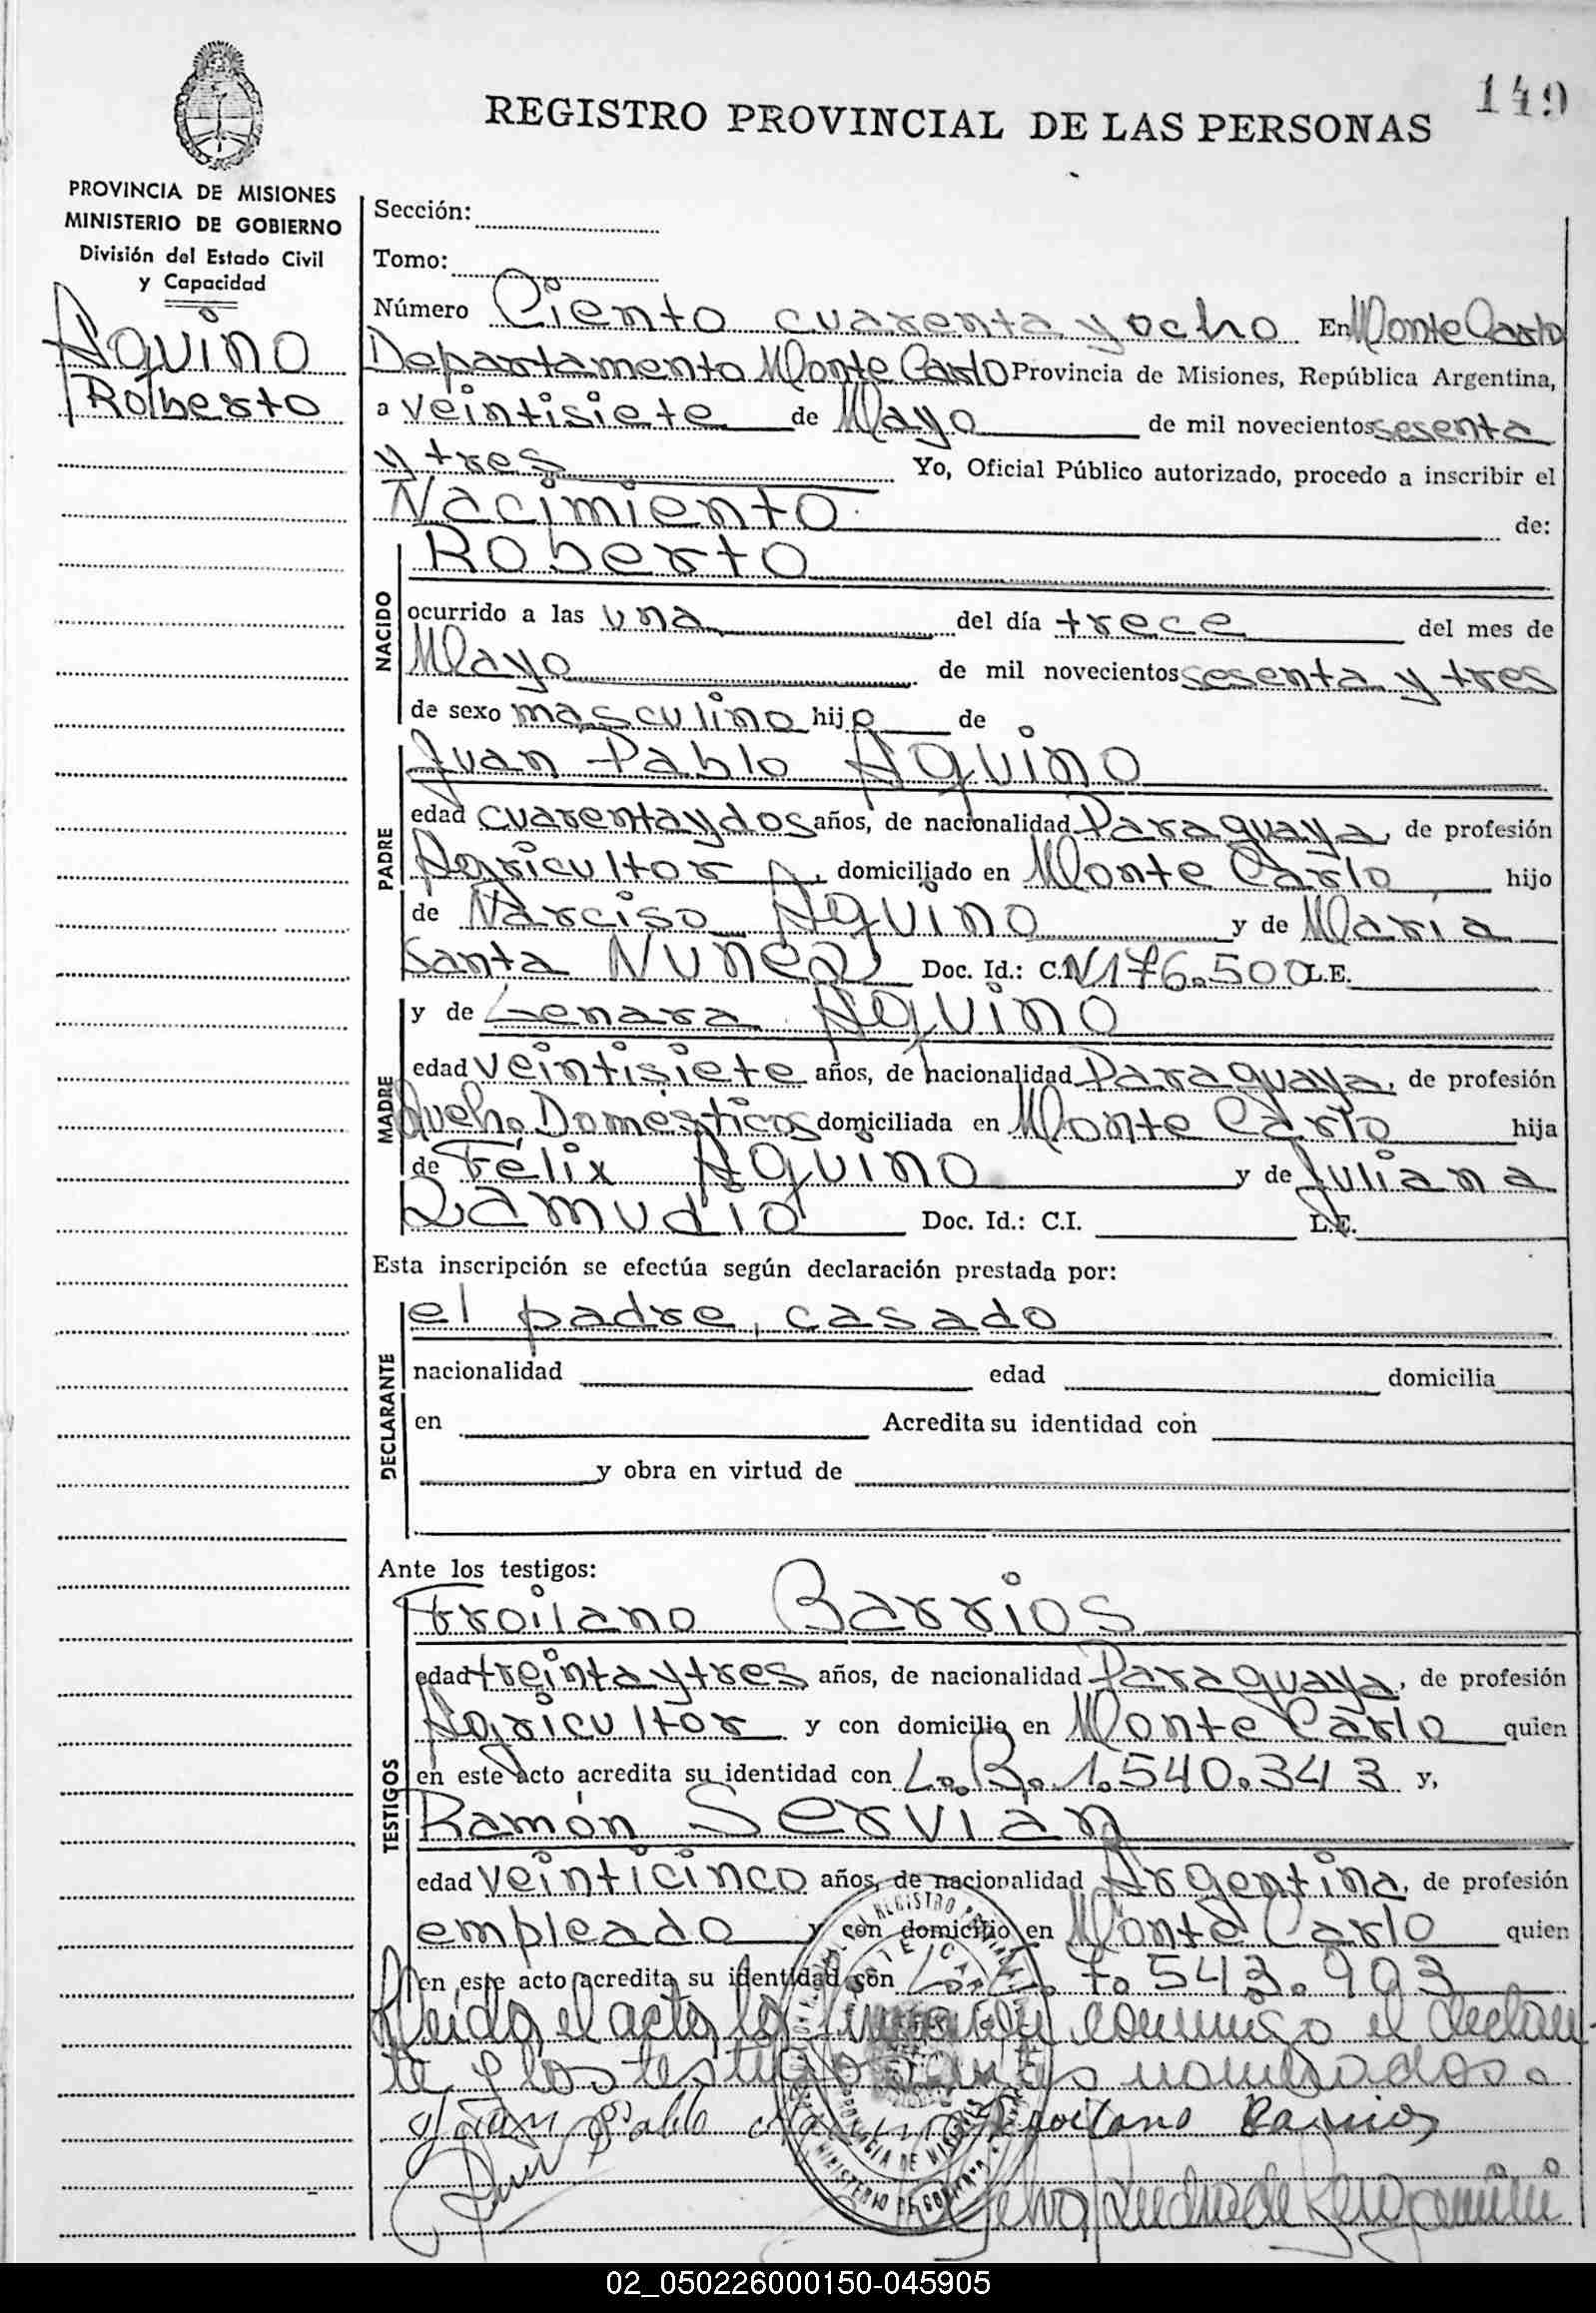 149
REGISTRO PROVINCIAL DE LAS PERSONAS
PROVINCIA DE MISIONES
MINISTERIO DE GOBIERNO
División del Estado Civil
y Capacidad
Aquino
Roberto
Sección:
Tomo:
Número Ciento cuarenta y ocho En Monte Carlo
Departamento Monte Carlo Provincia de Misiones, República Argentina,
a veintisiete de Mayo de mil novecientos sesenta
y tres Yo, Oficial Público autorizado, procedo a inscribir el
Nacimiento de:
NACIDO
Roberto
ocurrido a las una del día trece del mes de
Mayo de mil novecientos sesenta y tres
de sexo masculino hijo de
PADRE
Juan Pablo Aquino
edad cuarenta y dos años, de nacionalidad Paraguaya, de profesión
Agricultor, domiciliado en Monte Carlo hijo
de Narciso Aquino y de María
Santa Nuñez Doc. Id.: C.I. Nº 176.500 L.E.
MADRE
y de Genara Aquino
edad veintisiete años, de nacionalidad Paraguaya, de profesión
Queh. Domésticos domiciliada en Monte Carlo hija
de Félix Aquino y de Juliana
Zamudio Doc. Id.: C.I. L.E.
Esta inscripción se efectúa según declaración prestada por:
DECLARANTE
el padre, casado
nacionalidad edad domicilia
en Acredita su identidad con
y obra en virtud de
Ante los testigos:
TESTIGOS
Froilano Barrios
edad treinta y tres años, de nacionalidad Paraguaya, de profesión
Agricultor y con domicilio en Monte Carlo quien
en este acto acredita su identidad con L.B. 1.540.343 y,
Ramón Servian
edad veinticinco años, de nacionalidad Argentina, de profesión
empleado y con domicilio en Monte Carlo quien
en este acto acredita su identidad con L.E. 7.543.903
Leida el acta la firman conmigo el declaran-
te y los testigos antes nombrados.
Juan Pablo Aquino Froilano Barrios
02_050226000150-045905